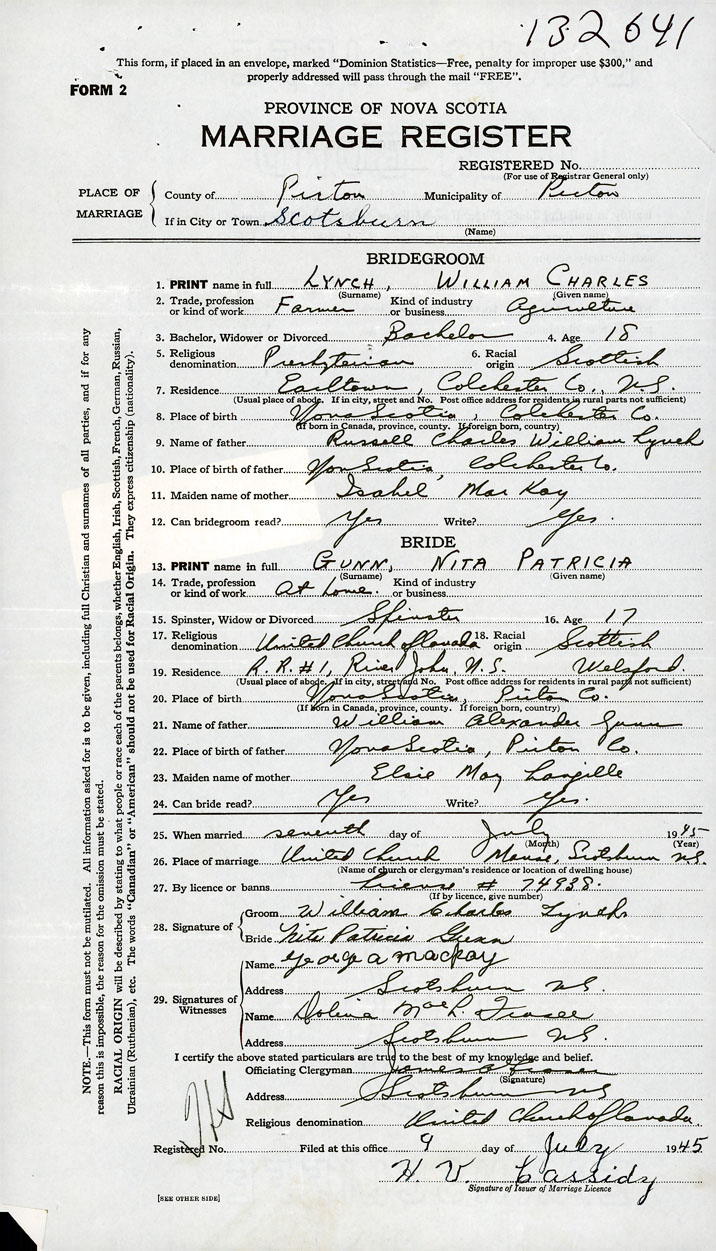 132641
This form, if placed in an envelope, marked "Dominion Statistics—Free, penalty for improper use $300," and
properly addressed will pass through the mail "FREE".
FORM 2
PROVINCE OF NOVA SCOTIA
MARRIAGE REGISTER
REGISTERED No.
(For use of Registrar General only)
PLACE OF MARRIAGE
County of Pictou Municipality of Pictou
If in City or Town Scotsburn
(Name)
BRIDEGROOM
1. PRINT name in full LYNCH, WILLIAM CHARLES
(Surname) (Given name)
2. Trade, profession or kind of work Farmer Kind of industry or business Agriculture
3. Bachelor, Widower or Divorced Bachelor 4. Age 18
5. Religious denomination Presbyterian 6. Racial origin Scottish
7. Residence Earltown, Colchester Co., N.S.
(Usual place of abode. If in city, street and No. Post office address for residents in rural parts not sufficient)
8. Place of birth Nova Scotia, Colchester Co.
(If born in Canada, province, county. If foreign born, country)
9. Name of father Russell Charles William Lynch
10. Place of birth of father Nova Scotia, Colchester Co.
11. Maiden name of mother Isabel MacKay
12. Can bridegroom read? Yes Write? Yes.
BRIDE
13. PRINT name in full GUNN, NITA PATRICIA
(Surname) (Given name)
14. Trade, profession or kind of work At home. Kind of industry or business
15. Spinster, Widow or Divorced Spinster 16. Age 17
17. Religious denomination United Church of Canada 18. Racial origin Scottish
19. Residence R.R.#1, River John, N.S. Welsford.
(Usual place of abode. If in city, street and No. Post office address for residents in rural parts not sufficient)
20. Place of birth Nova Scotia, Pictou Co.
(If born in Canada, province, county. If foreign born, country)
21. Name of father William Alexander Gunn
22. Place of birth of father Nova Scotia, Pictou Co.
23. Maiden name of mother Elsie May Langille
24. Can bride read? Yes Write? Yes.
25. When married seventh day of July 1945
(Month) (Year)
26. Place of marriage United Church Manse, Scotsburn N.S.
(Name of church or clergyman's residence or location of dwelling house)
27. By licence or banns License # 74938.
(If by licence, give number)
28. Signature of
Groom William Charles Lynch
Bride Nita Patricia Gunn
29. Signatures of Witnesses
Name George A MacKay
Address Scotsburn N.S.
Name Dolina MacL. Fraser
Address Scotsburn N.S.
I certify the above stated particulars are true to the best of my knowledge and belief.
Officiating Clergyman James A Fraser
(Signature)
Address Scotsburn N.S.
Religious denomination United Church of Canada.
Registered No. Filed at this office 9 day of July 1945
H. V. Cassidy
Signature of Issuer of Marriage Licence
[SEE OTHER SIDE]
NOTE.—This form must not be mutilated. All information asked for is to be given, including full Christian and surnames of all parties, and if for any
reason this is impossible, the reason for the omission must be stated.
RACIAL ORIGIN will be described by stating to what people or race each of the parents belongs, whether English, Irish, Scottish, French, German, Russian,
Ukrainian (Ruthenian), etc. The words "Canadian" or "American" should not be used for Racial Origin. They express citizenship (nationality).